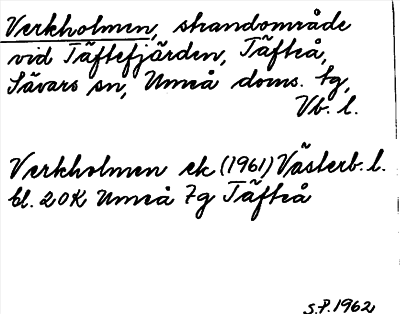 Verkholmen, strandområde
vid Täftefjärden, Täfteå,
Sävars sn, Umeå doms. tg,
Vb. l.
Verkholmen ek (1961) Västerb. l.
bl. 20K Umeå 7g Täfteå
S.P. 1962